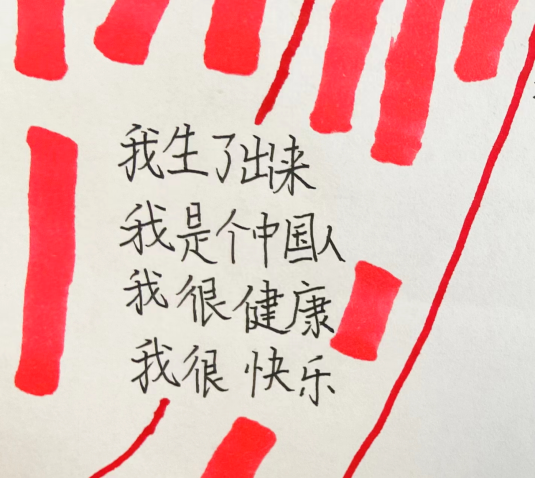 我生了出来
我是个中国人
我很健康
我很快乐